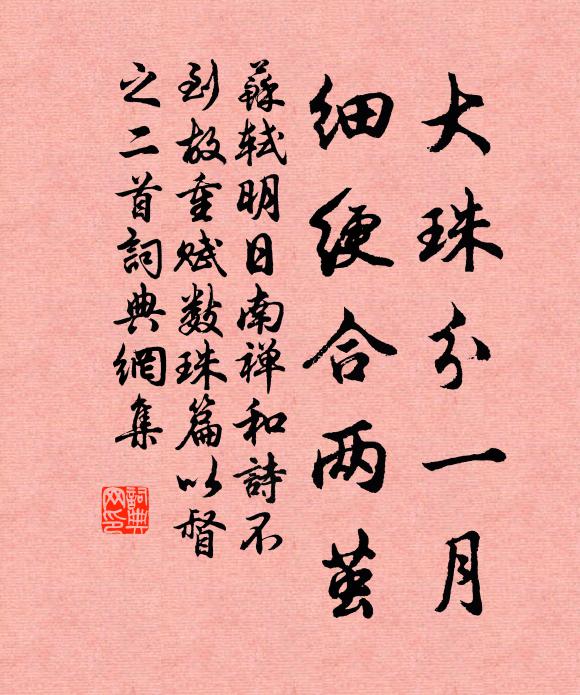 大珠分一月
细绠合两茧
蘇轼明日南禅和詩不
到故重赋數珠篇以督
之二首詞典網集
詞典网印